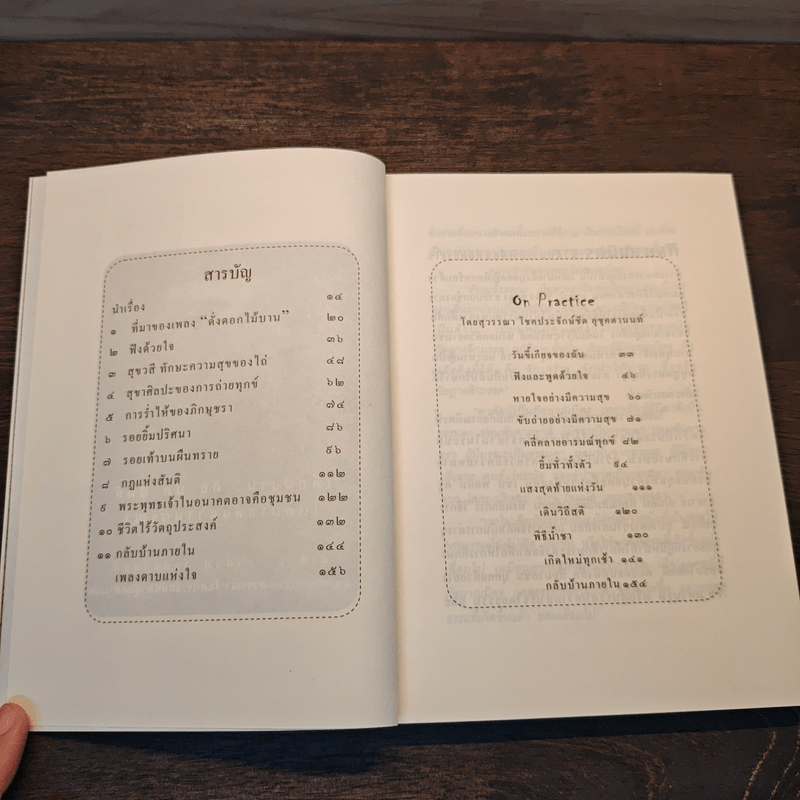 สารบัญ
นำเรื่อง ๑๔
๑ ที่มาของเพลง “ดั่งดอกไม้บาน” ๒๐
๒ ฟังด้วยใจ ๓๖
๓ สุขวสี ทักษะความสุขของไถ่ ๔๘
๔ สุขาศิลปะของการถ่ายทุกข์ ๖๒
๕ การร่ำไห้ของภิกษุชรา ๗๔
๖ รอยยิ้มปริศนา ๘๖
๗ รอยเท้าบนผืนทราย ๙๖
๘ กฎแห่งสันติ ๑๑๒
๙ พระพุทธเจ้าในอนาคตอาจคือชุมชน ๑๒๒
๑๐ ชีวิตไร้วัตถุประสงค์ ๑๓๒
๑๑ กลับบ้านภายใน ๑๔๔
เพลงดาบแห่งใจ ๑๕๖
On Practice
โดยสุวรรณา โชคประจักษ์ชัด อุชุคตานนท์
วันขี้เกียจของฉัน ๓๓
ฟังและพูดด้วยใจ ๔๖
หายใจอย่างมีความสุข ๖๐
ขับถ่ายอย่างมีความสุข ๗๑
คลี่คลายอารมณ์ทุกข์ ๘๒
ยิ้มทั่วทั้งตัว ๙๔
แสงสุดท้ายแห่งวัน ๑๑๑
เดินวิถีสติ ๑๒๐
พิธีน้ำชา ๑๓๐
เกิดใหม่ทุกเช้า ๑๔๑
กลับบ้านภายใน ๑๕๔